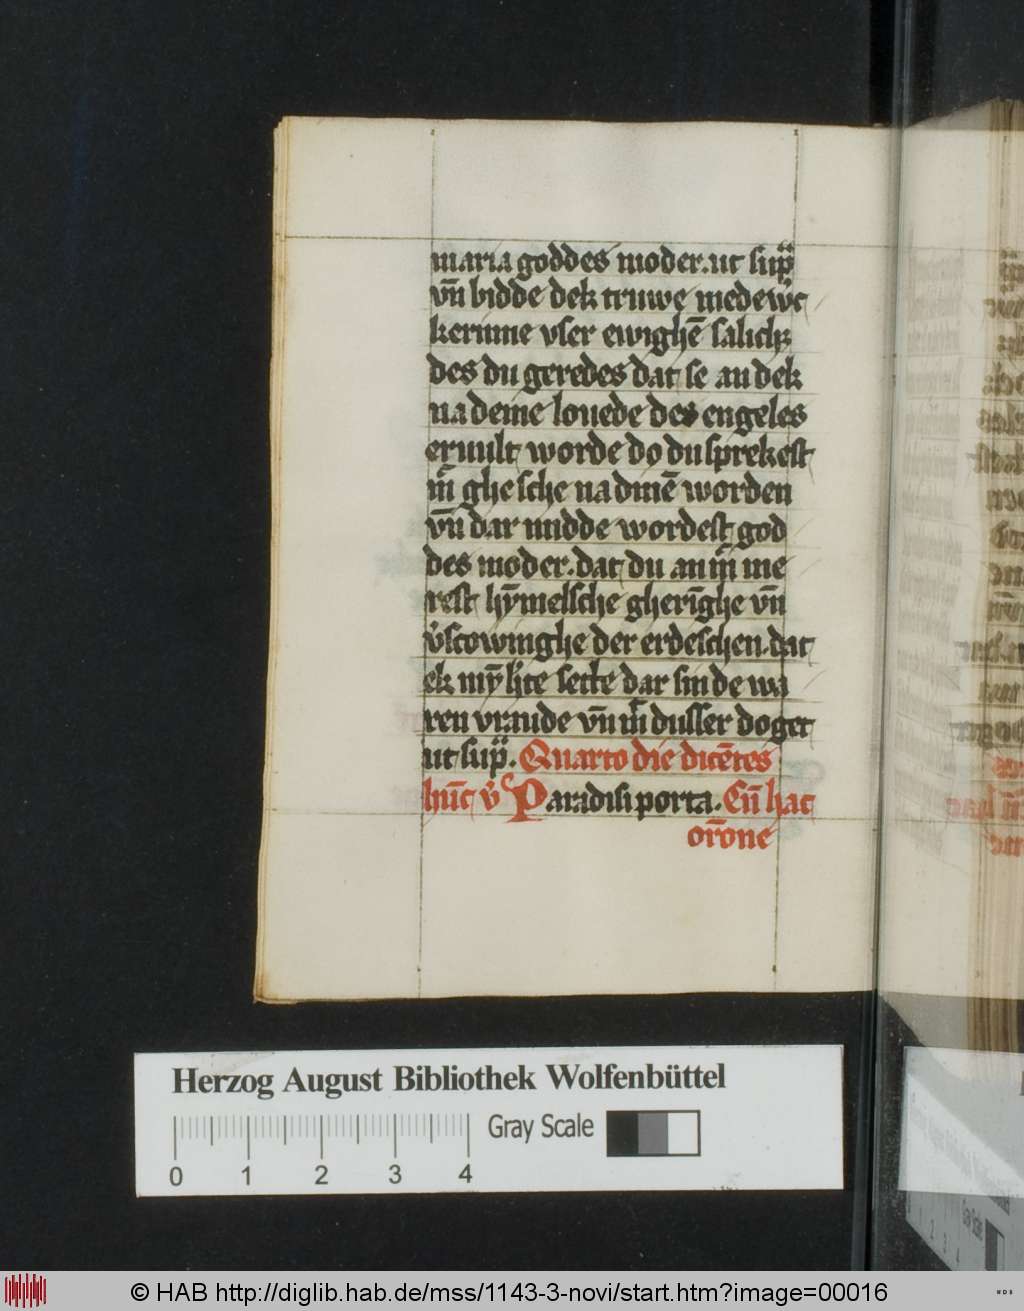 maria goddes moder. ut sup̄
vn̄ bidde dek truwe medewͦ
kerinne vser ewighē salich
des du geredes dat se an dek
na deme louede des engeles
eruult worde do du sprekest
m̄ ghesche na dinē worden
vn̄ dar midde wordest god
des moder. dat du an m̄ me
rest hȳmelsche gherīghe vn̄
v̓scowinghe der erdeschen. dat
ek mȳ lſte sette dar sinde wa
ren vraude vn̄ m̄ dusser doget
ut sup̄. Quarto die dicētes
hūc v̓ Paradisi porta. Cū hac
orōne
Herzog August Bibliothek Wolfenbüttel
Gray Scale
0 1 2 3 4
© HAB http://diglib.hab.de/mss/1143-3-novi/start.htm?image=00016